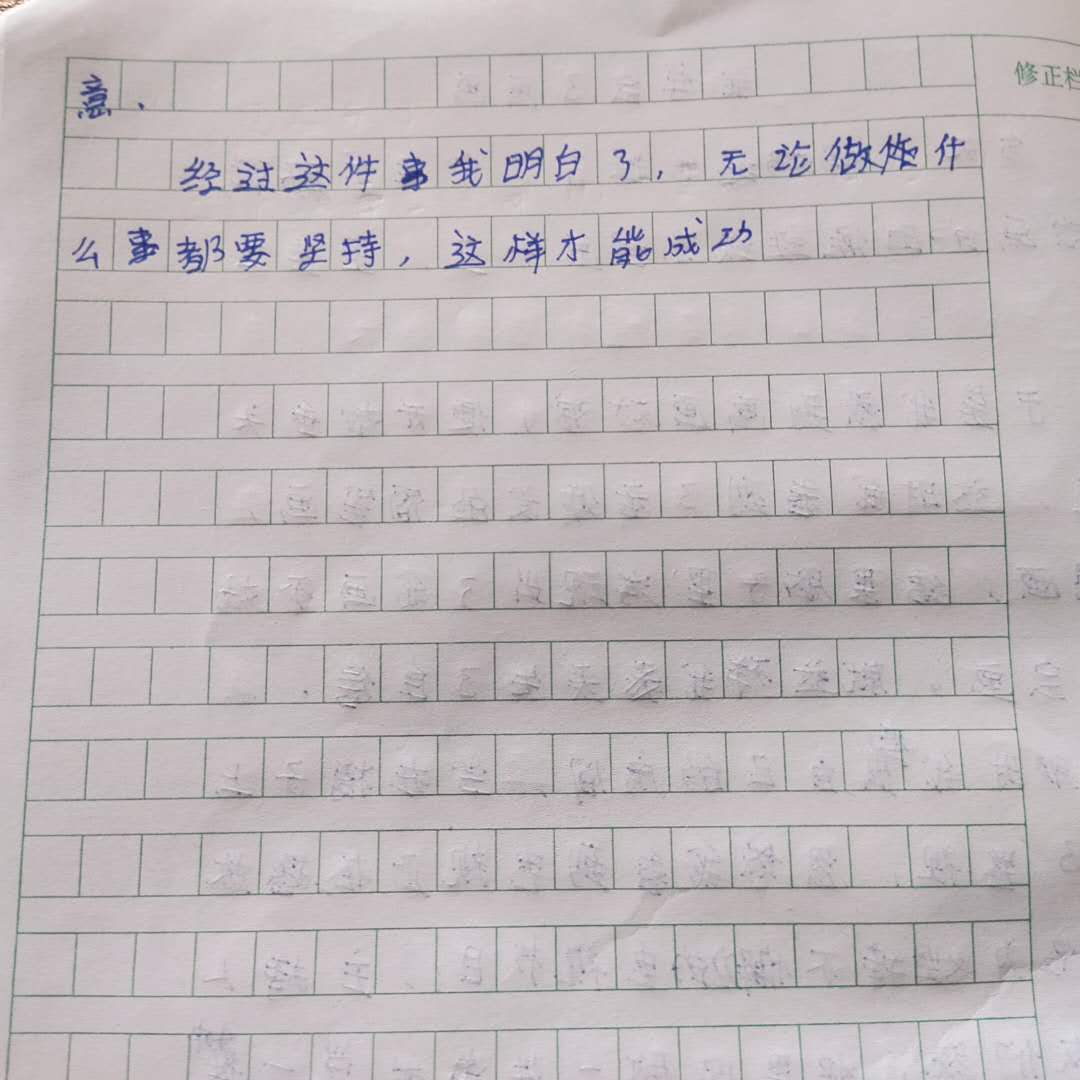 修正栏
意、
经过这件事我明白了，无论做做什
么事都要坚持，这样才能成功